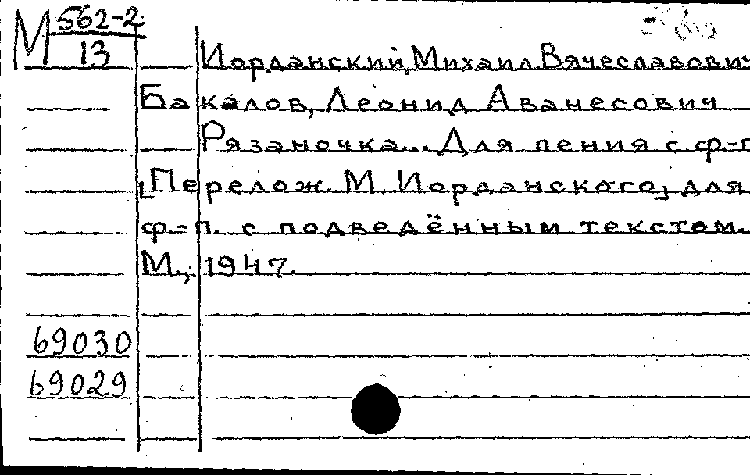 М 562-2
13
Иорданский, Михаил Вячеславович
Бакалов, Леонид Аванесович
Рязаночка... Для пения с ф-п
[Перелож. М. Иорданского] для
ф-п. с подведённым текстом.
М., 1947.
69030
69029